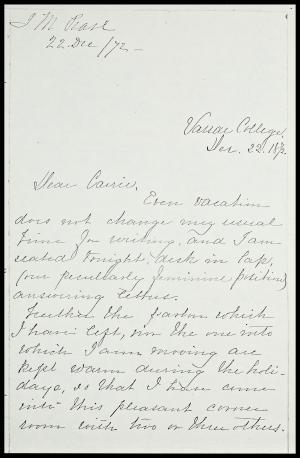 J M Rose
22 Dec /72 –
Vassar College,
Dec. 22. 1872.
Dear Carrie,
Even vacation
does not change my usual
time for writing, and I am
seated tonight, desk in lap,
(our peculiarly feminine position)
answering letters.
Neither the parlor which
I have left, nor the one into
which I am moving are
kept warm during the holi-
days, so that I have come
into this pleasant corner
room with two or three others.